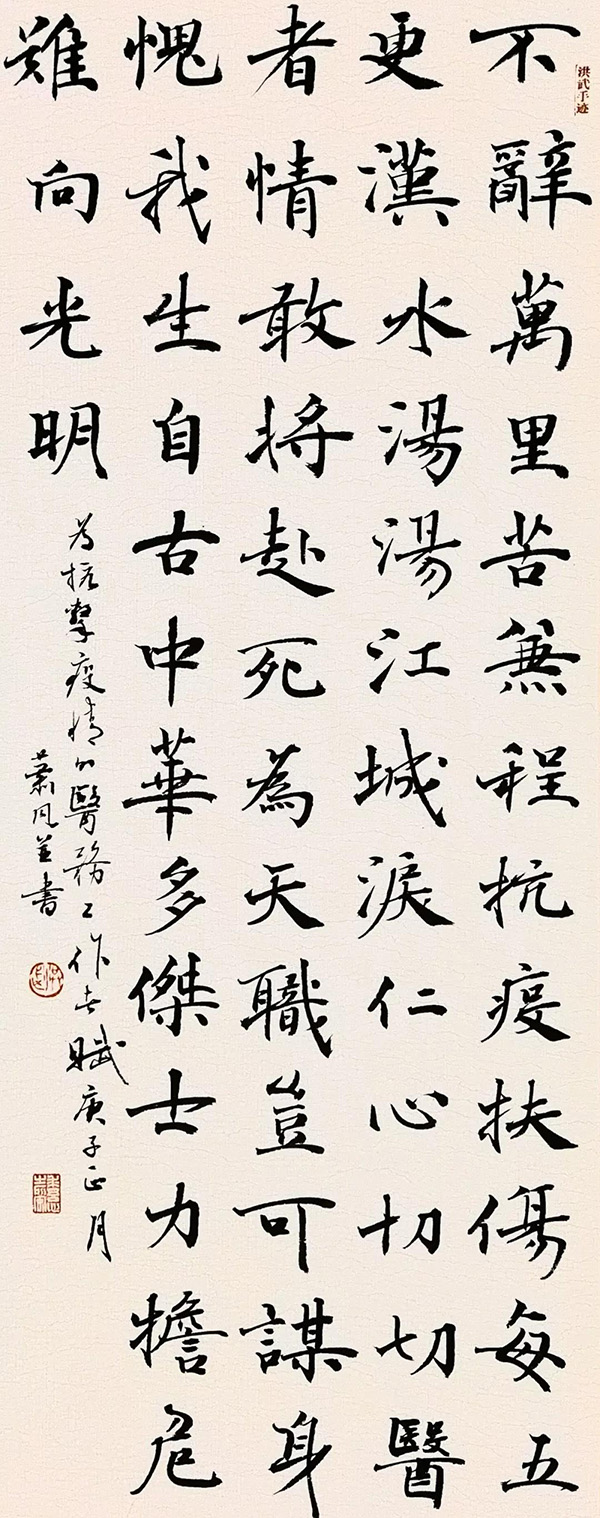 洪武手迹
不辭萬里苦兼程抗疫扶傷每五
更漢水湯湯江城淚仁心切切醫
者情敢將赴死為天職豈可謀身
愧我生自古中華多傑士力擔危
難向光明
為抗擊疫情的醫務工作者賦庚子正月
蕭風並書